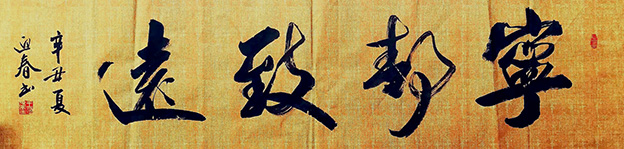 寧靜致遠
辛丑夏
迎春书